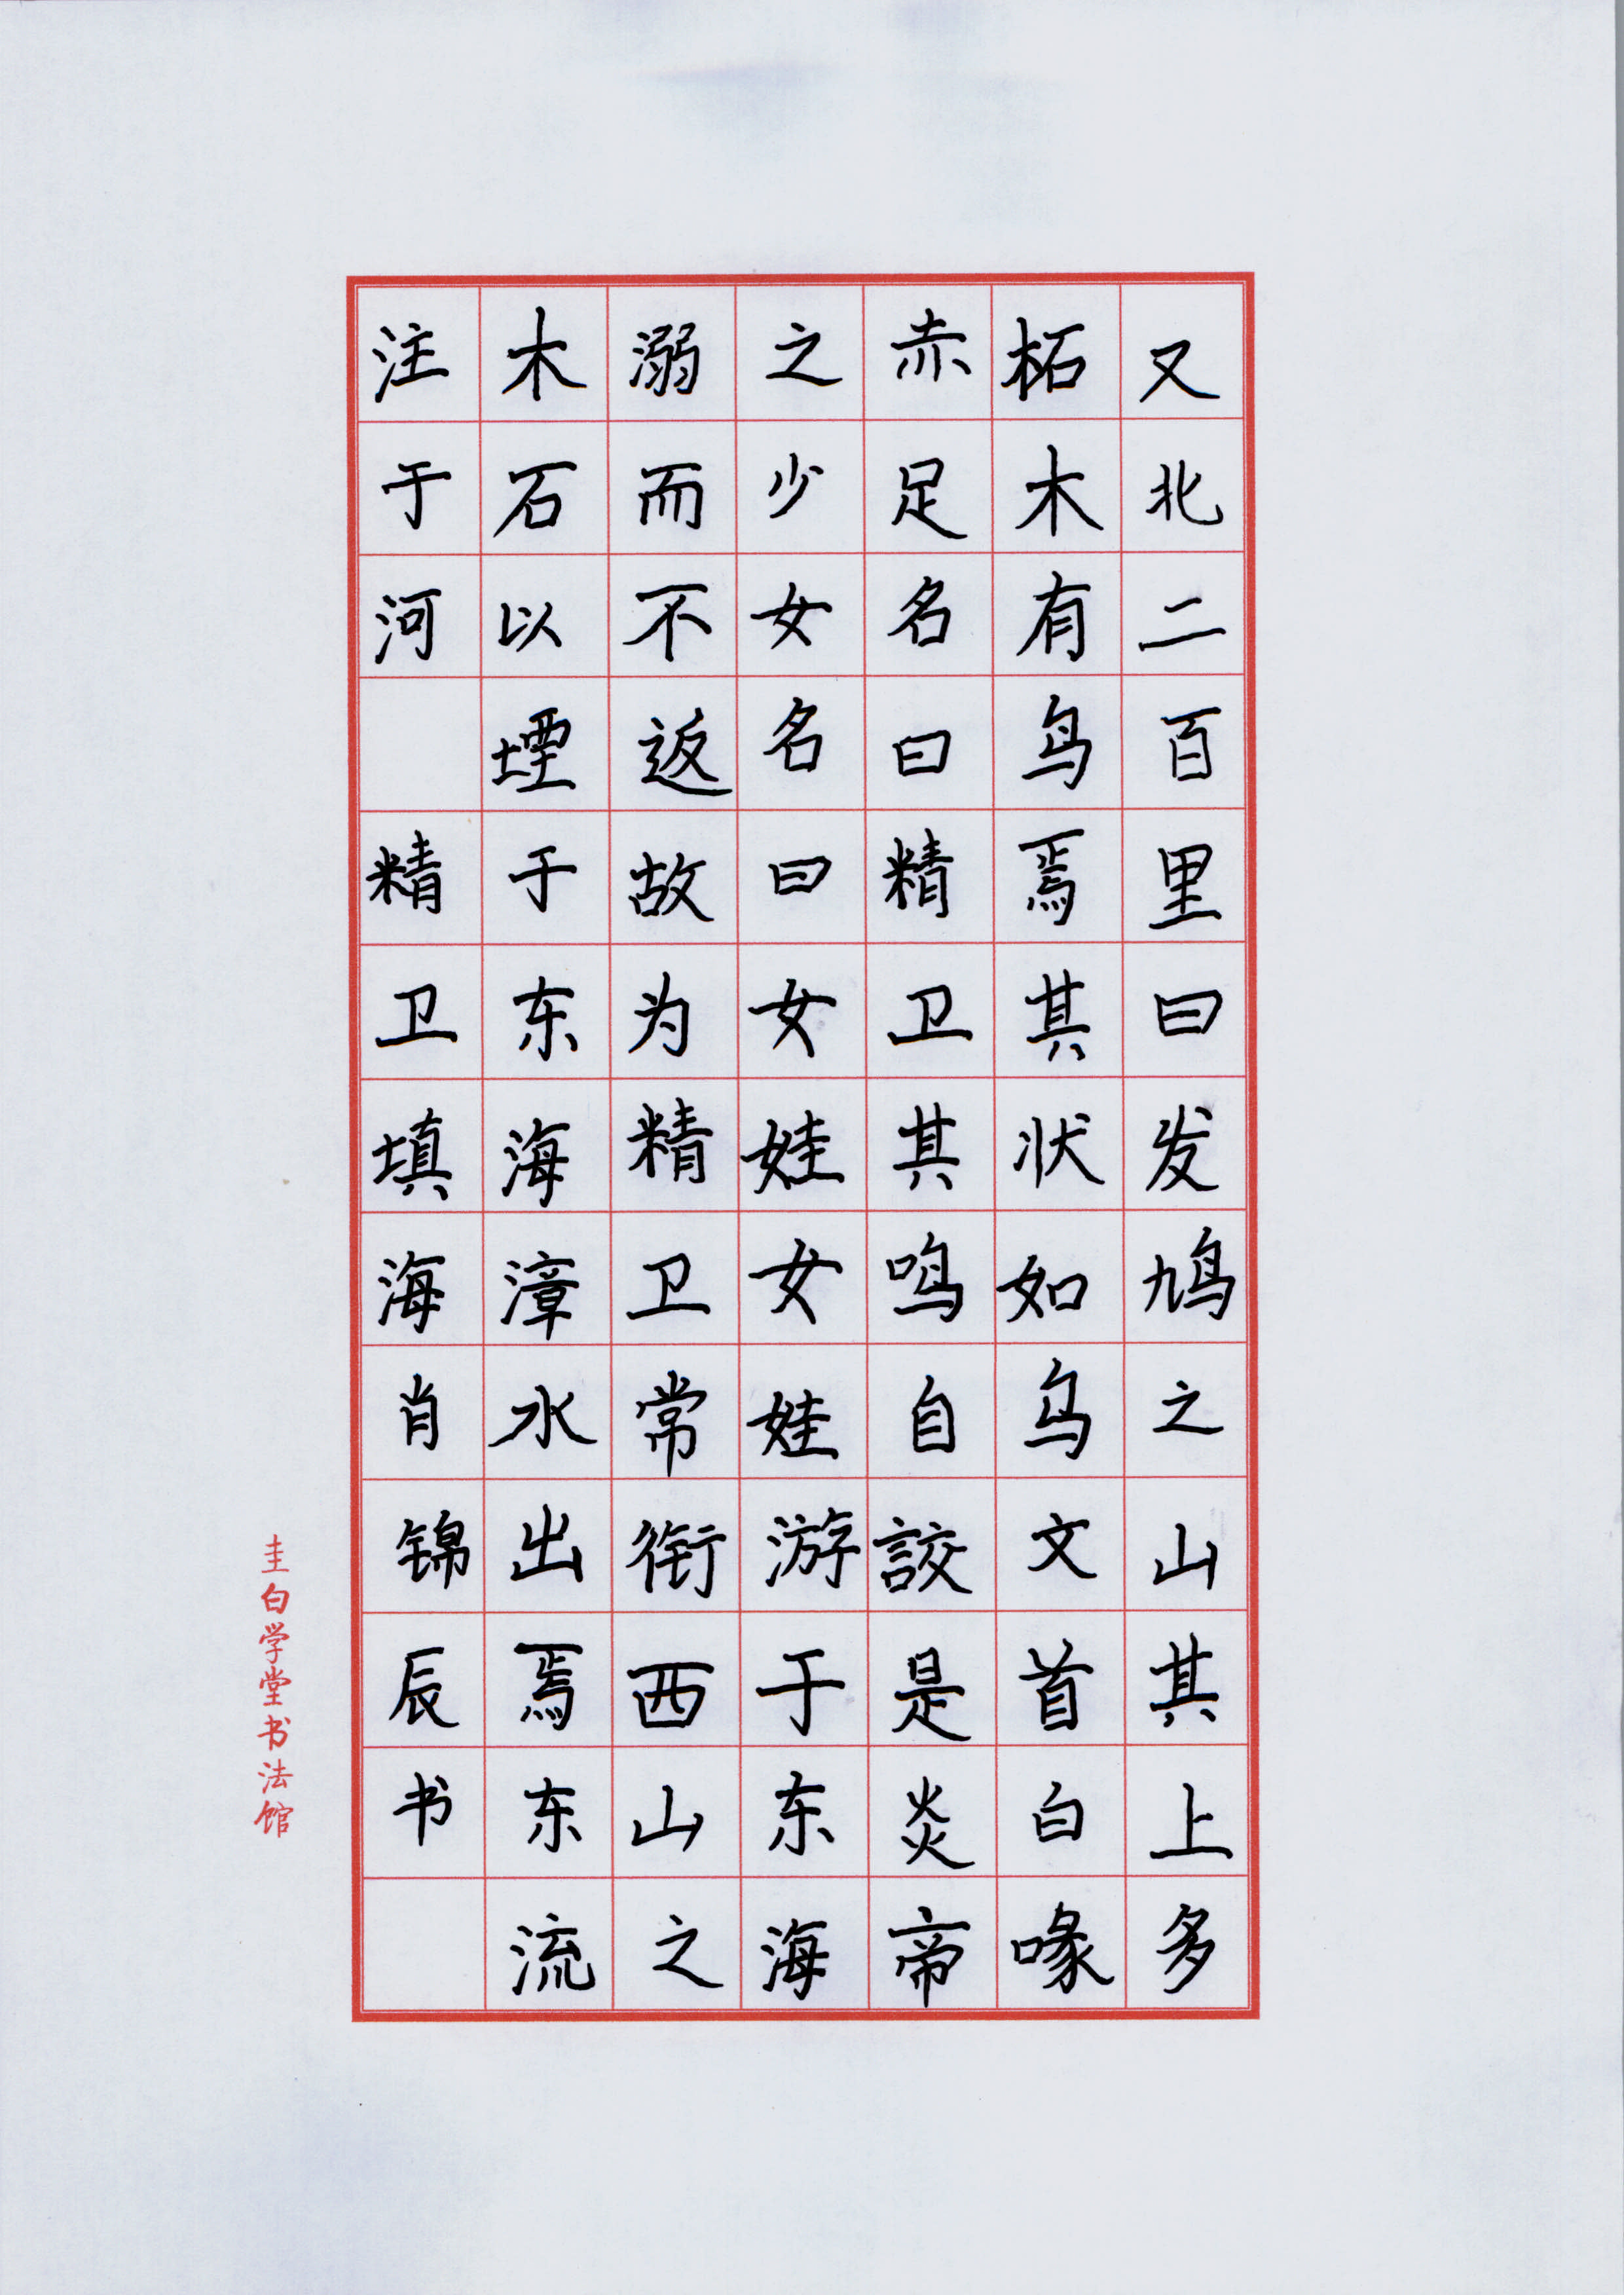 又北二百里曰发鸠之山其上多
柘木有鸟焉其状如乌文首白喙
赤足名曰精卫其鸣自詨是炎帝
之少女名曰女娃女娃游于东海
溺而不返故为精卫常衔西山之
木石以堙于东海漳水出焉东流
注于河 精卫填海肖锦辰书
圭白学堂书法馆